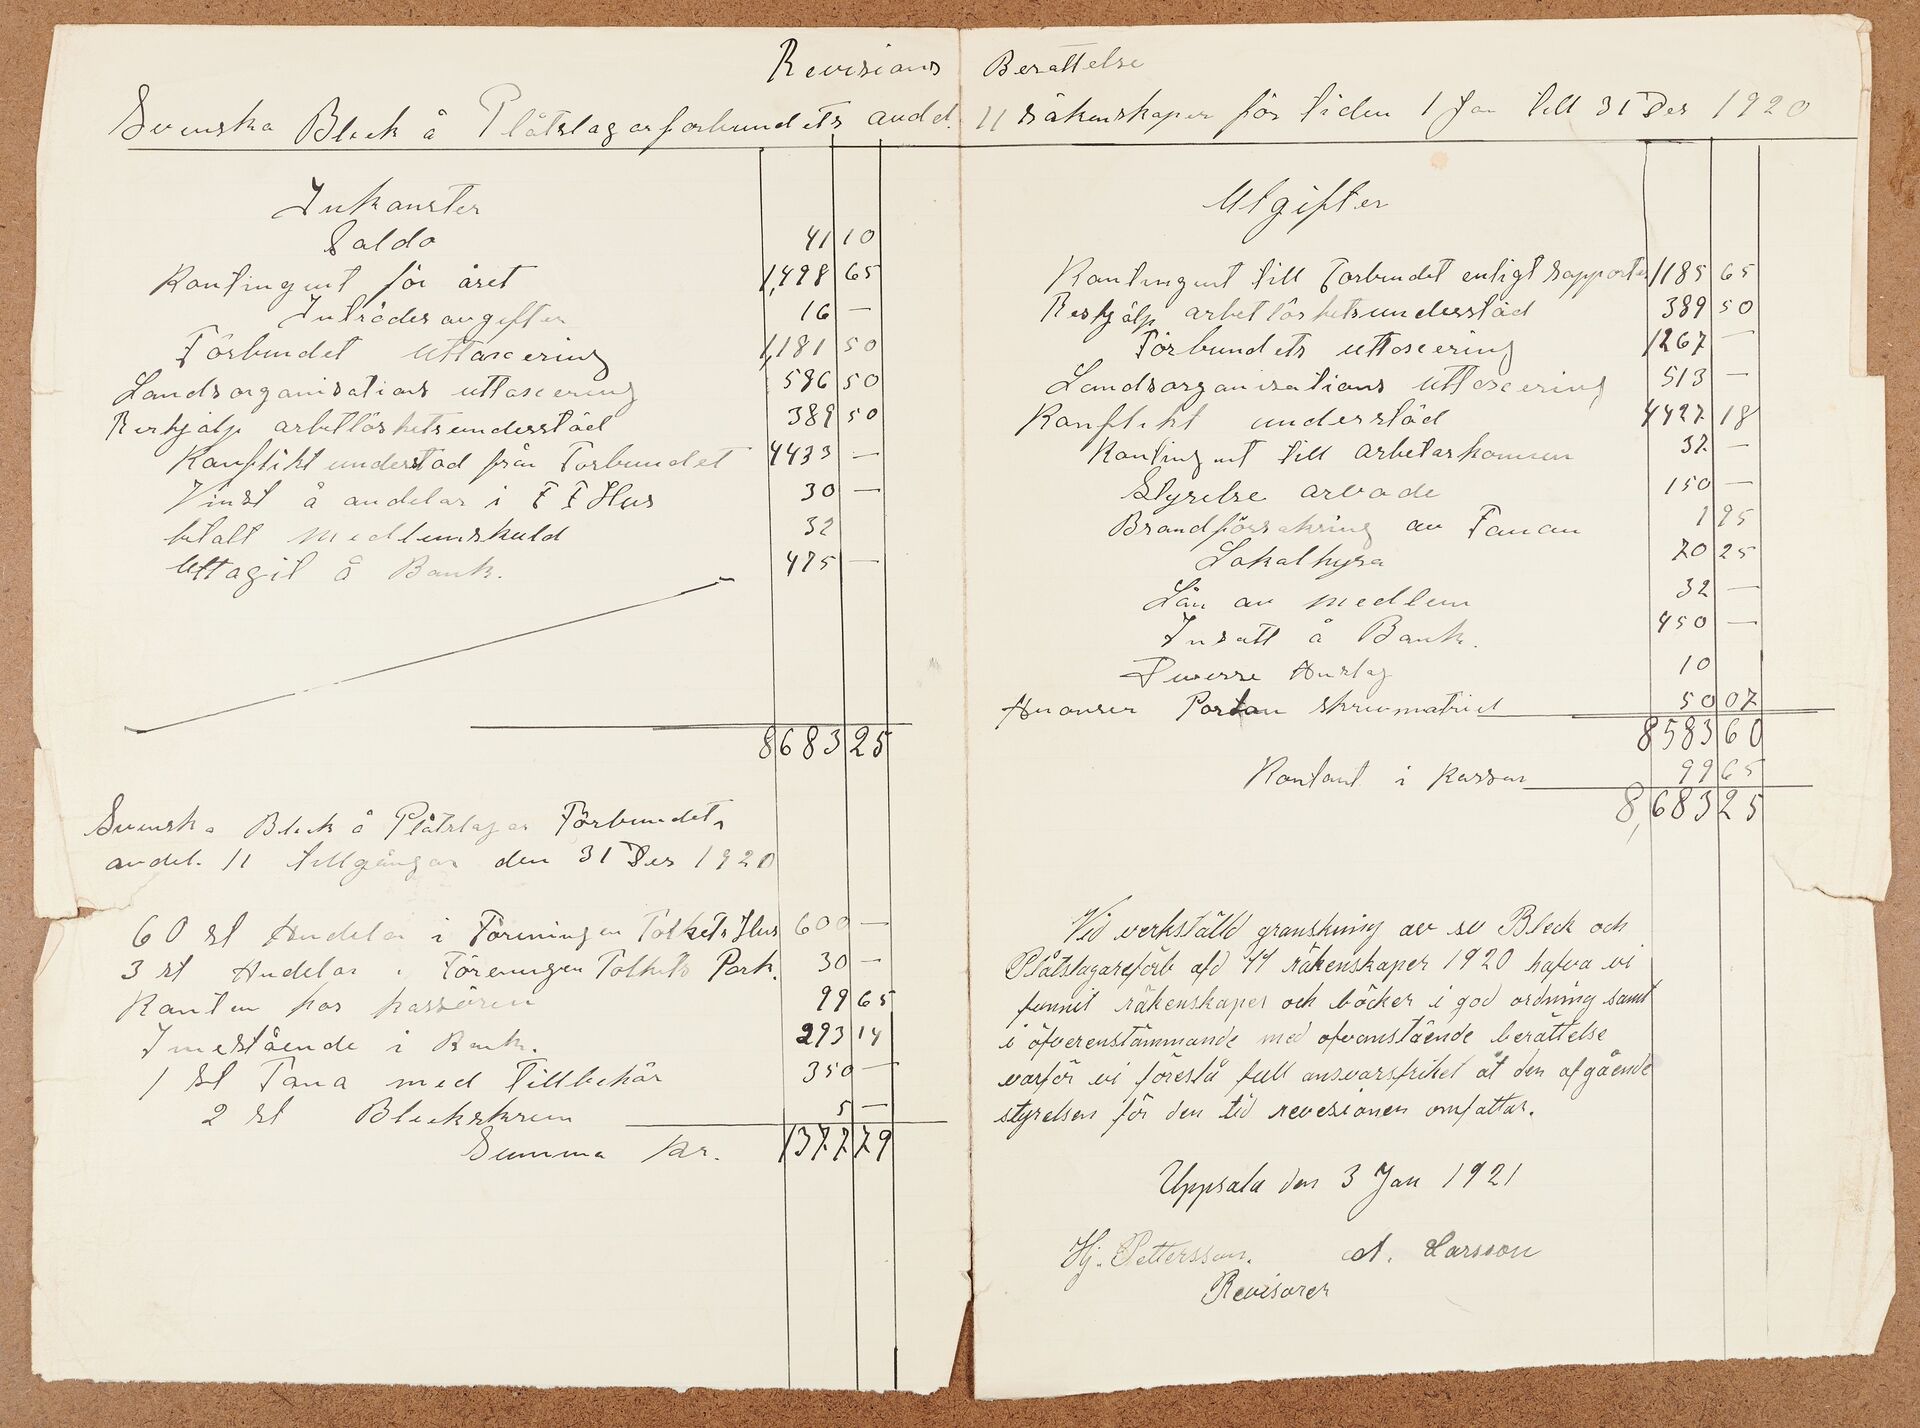 Revisions Berättelse
Svenska Bleck å Plåtslagareforbundets avdel. 11 räkenskaper för tiden 1 Jan till 31 Des 1920
Inkomster
Saldo 41 10
Kontingent för året 1,498 65
Inträdesavgifter 16 —
Förbundet uttaxering 1,181 50
Landsorganisations uttaxering 586 50
Reshjälp arbetlöshetsunderstöd 389 50
Konflikt understöd från Förbundet 4433 —
Vinst å andelar i F F Hus 30 —
betalt medlemskuld 32
Uttagit å Bank. 475 —
8683 25
Svenska Bleck å Plåtslagar Förbundets
avdel. 11 tillgångar den 31 Des 1920
60 st Andelar i Föreningen Folkets Hus 600 —
3 st Andelar i Föreningen Folkets Park. 30 —
Kontan hos kassören 99 65
Inestående i Bank. 293 14
1 st Fana med Tillbehör 350 —
2 st Bleckskrin 5 —
Summa kr. 1377 79
Utgifter
Kontingent till Förbundet enligt rapporter 1185 65
Reshjälp arbetlöshetsunderstöd 389 50
Förbundets uttaxering 1267 —
Landsorganisations uttaxering 513 —
Konflikt understöd 4427 18
Kontingent till arbetarkomun 37 —
Styrelse arvode 150 —
Brandförsäkring av Fanan 1 95
Lokalhyra 70 25
Lån av medlem 32 —
Insatt å Bank. 450 —
Diverse Anslag 10
Anonser Porton skrivmatriel 50 07
8583 60
Kontant i kassan 99 65
8,683 25
Vid verkställd granskning av sv Bleck och
Plåtslagareförb afd 11 räkenskaper 1920 hafva vi
funnit räkenskaper och böcker i god ordning samt
i öfverenstämmande med ofvanstående berättelse
varför vi föreslå full ansvarsfrihet åt den afgående
styrelsen för den tid revesionen omfattar.
Uppsala den 3 Jan 1921
Hj. Pettersson. A. Larsson
Revisorer